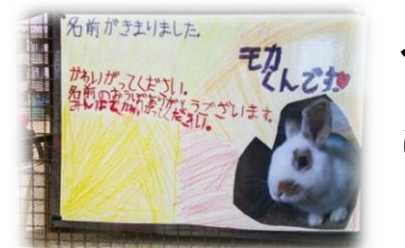 名前がきまりました。
モカ
くんです
かわいがってください。
名前のおうぼありがとうございます。
みんなでかわいがってください。